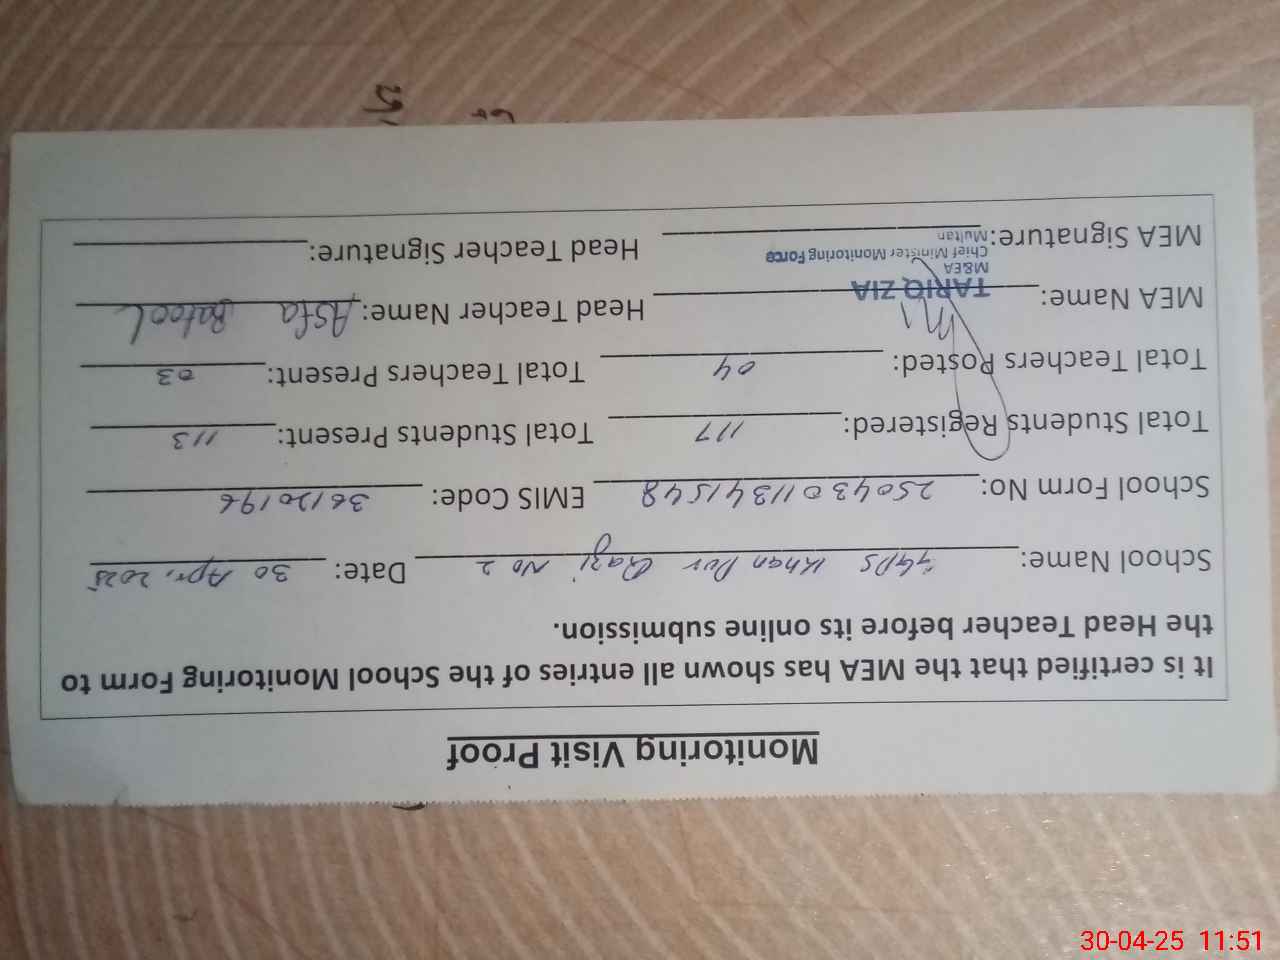 Monitoring Visit Proof
It is certified that the MEA has shown all entries of the School Monitoring Form to
the Head Teacher before its online submission.
School Name: GGPS Khan Pur Qazi No 2 Date: 30 Apr, 2025
School Form No: 25043011341548 EMIS Code: 36120196
Total Students Registered: 117 Total Students Present: 113
Total Teachers Posted: 04 Total Teachers Present: 03
MEA Name: TARIQ ZIA Head Teacher Name: Asfa Batool
M&EA
Chief Minister Monitoring Force
MEA Signature: Multan Head Teacher Signature:
30-04-25 11:51